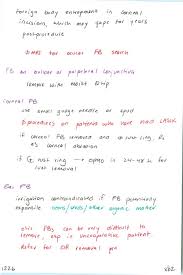 foreign body entrapment in corneal
incisions, which may gape for years
post-procedure
FB on bulbar or palpebral conjunctiva
remove with moist Q-tip
Corneal FB
use small gauge needle or spud
↑ precautions on patients who have had LASIK
if corneal FB removed and no rust ring, Rx
as corneal abrasion
if ⊕ rust ring → ophtho in 24-48 h for
removal
irrigation contraindicated if FB potentially
expansile
organic matter
FBs can be very difficult to
remove esp in uncooperative patient
Refer for OR removal prn